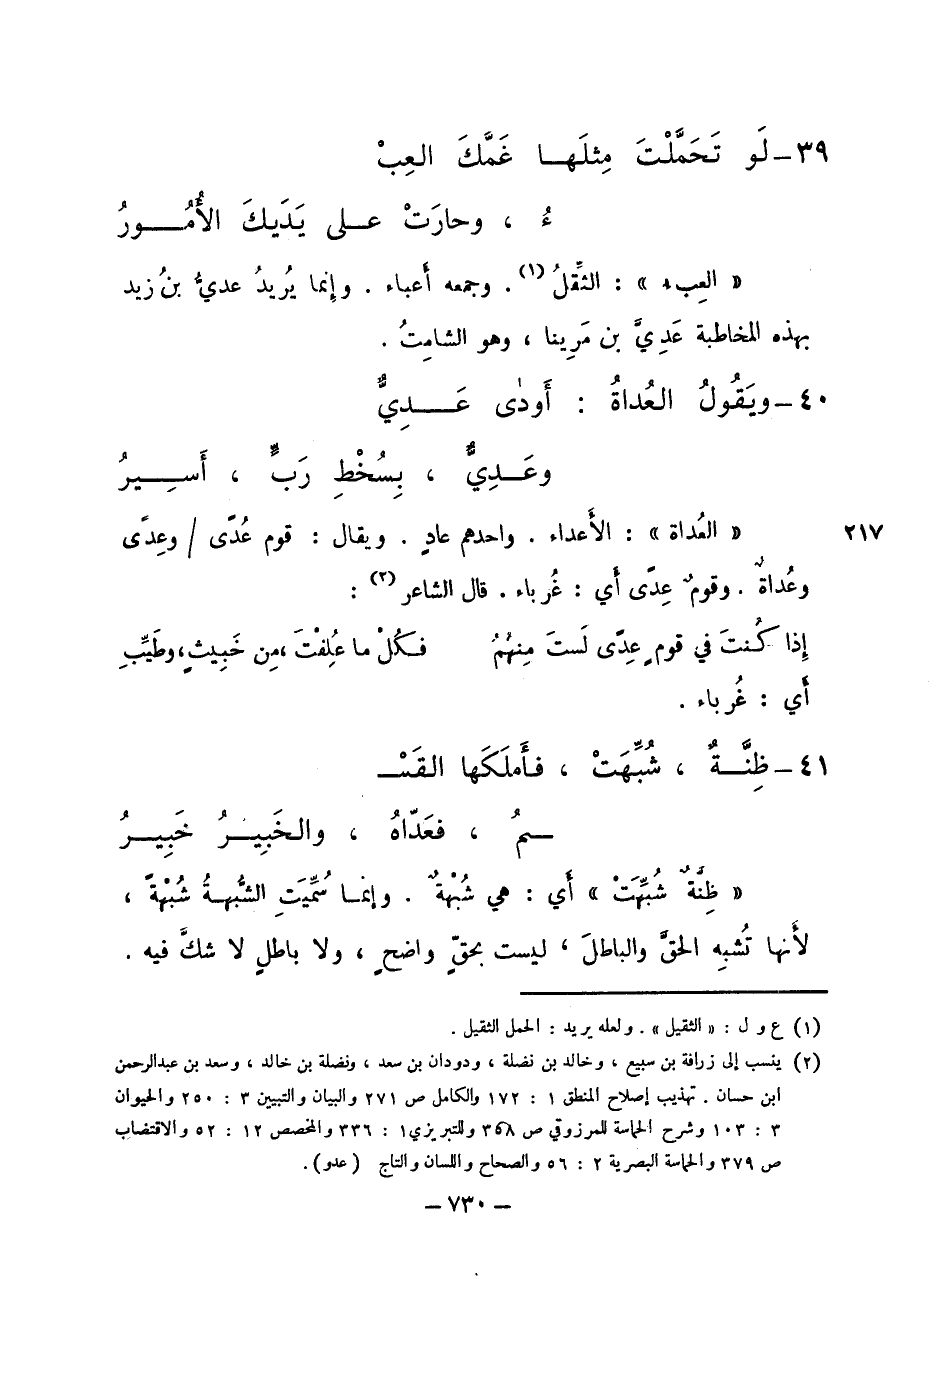 ٣٩ - لَو تَحَمَّلْتَ مِثلَها غَمَّكَ العِبْ
ءُ ، وحارَتْ على يَدَيكَ الأُمُورُ
« العِبء » : الثِّقلُ (١) . وجمعه أعباء . وإنما يُريدُ عديُّ بنُ زيد
بهذه المخاطبة عَدِيَّ بن مَرِينا ، وهو الشامِتُ .
٤٠ - ويَقُولُ العُداةُ : أَودٰى عَدِيٌّ
وعَدِيٌّ ، بِسُخْطِ رَبٍّ ، أَسِيرُ
« العُداة » : الأَعداء . واحدهم عادٍ . ويقال : قوم عُدًى / وعِدًى ٢١٧
وعُداةٌ . وقومٌ عِدًى أي : غُرباء . قال الشاعر (٢) :
إِذا كُنتَ في قومٍ عِدًى لَستَ مِنهُمُ فكُلْ ما عُلِفْتَ ، مِن خَبِيثٍ ، وطَيِّبِ
أي : غُرباء .
٤١ - ظِنَّةٌ ، شُبِّهَتْ ، فأَملَكَها القَسْـ
ـمُ ، فعَدّاهُ ، والخَبِيرُ خَبِيرُ
« ظِنَّةٌ شُبِّهَتْ » أَي : هي شُبْهةٌ . وإنما سُمِّيَتِ الشُّبهةُ شُبْهةً ،
لأَنها تُشبِه الحقَّ والباطلَ ، ليست بحقٍّ واضحٍ ، ولا باطلٍ لا شكَّ فيه .
(١) ع و ل : « الثقيل » . ولعله يريد : الحمل الثقيل .
(٢) ينسب إلى زرافة بن سبيع ، وخالد بن نضلة ، ودودان بن سعد ، ونضلة بن خالد ، وسعد بن عبدالرحمن
ابن حسان . تهذيب إصلاح المنطق ١ : ١٧٢ والكامل ص ٢٧١ والبيان والتبيين ٣ : ٢٥٠ والحيوان
٣ : ١٠٣ وشرح الحماسة للمرزوقي ص ٣٥٨ وللتبريزي ١ : ٣٣٦ والمخصص ١٢ : ٥٢ والاقتضاب
ص ٣٧٩ والحماسة البصرية ٢ : ٥٦ والصحاح واللسان والتاج (عدو) .
– ٧٣٠ –